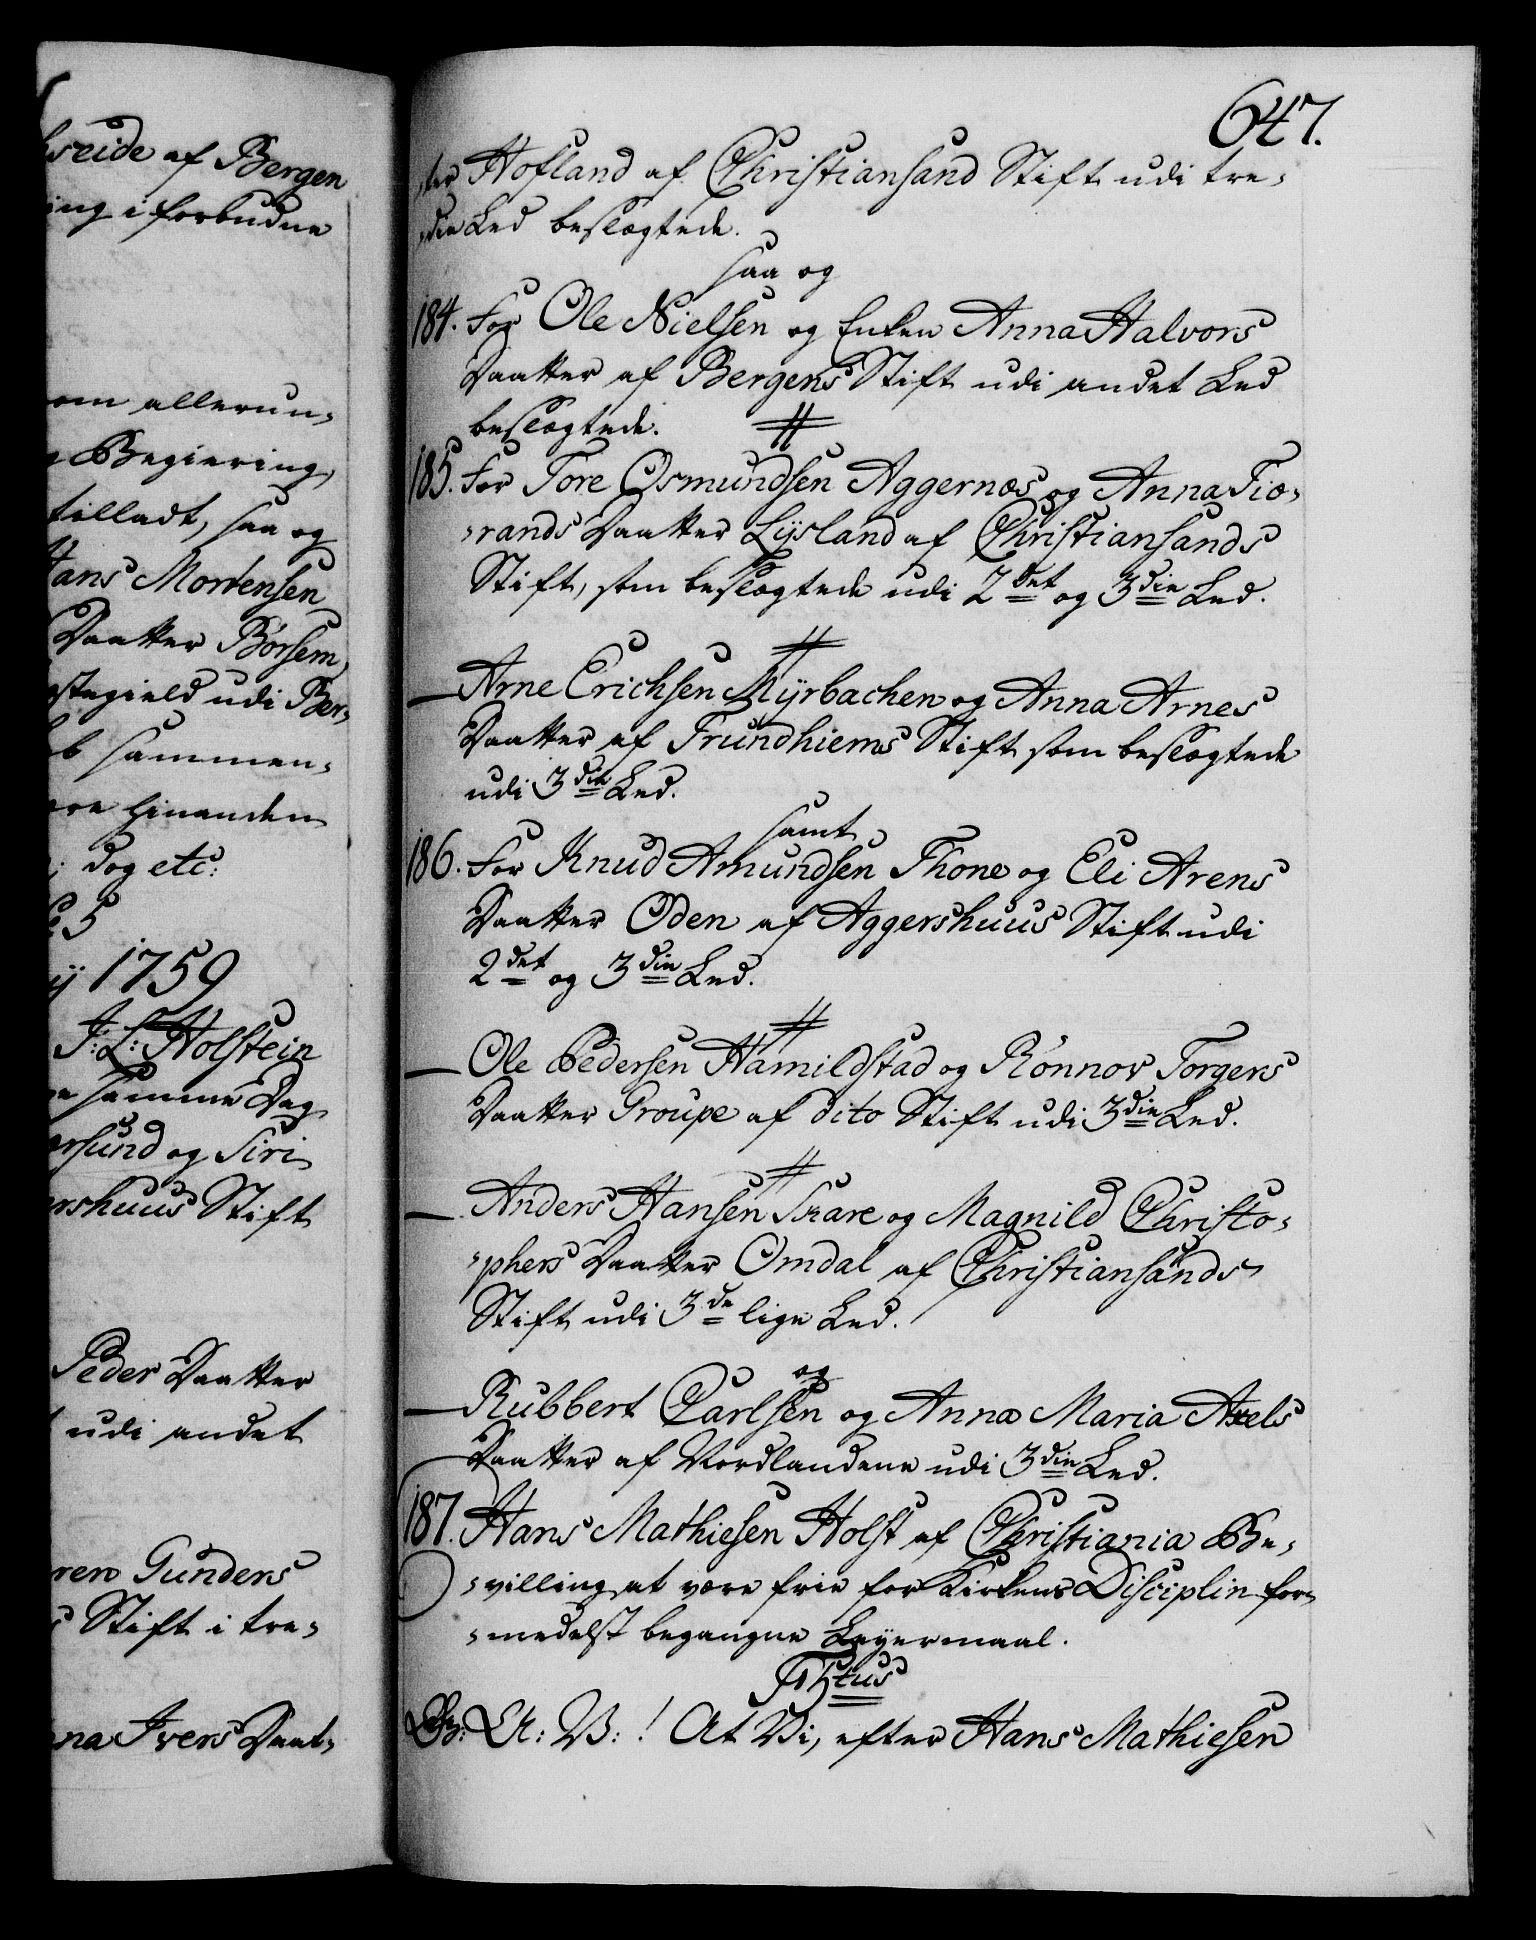 hreide af Bergen
ing i forbudne
om allerun-
Begiering,
tilladt, saa og
Hans Mortensen
Daatter Börsem,
stegield udi Ber-
sammen-
ere hinanden
dog etc:
5
1759
J: L: Holstein
samme Dag
ersund og Siri
ershuus Stift
Peder Daatter
udi andet
ren Gunders
Stift i tre-
na Ivers Daat-
647.
-ter Hofland af Christiansand Stift udi tre-
-die Led beslægtede.
saa og
184. For Ole Nielsen og Enken Anna Halvors
Daatter af Bergens Stift udi andet Led
beslægtede.
185. For Tore Osmundsen Aggernæs og Anna Tio-
-rands Daatter Lysland af Christiansands
Stift, som beslægtede udi 2det og 3die Led.
— Arne Erichsen Myrbachen og Anna Arnes
Daatter af Trundhiems Stift som beslægtede
udi 3die Led.
samt
186. For Knud Amundsen Thone og Eli Arens
Daatter Oden af Aggershuus Stift udi
2det og 3die Led.
— Ole Pedersen Hamildstad og Rönnov Torgers
Daatter Proupe af dito Stift udi 3die Led.
— Anders Hansen Skare og Magnild Christo-
-phers Daatter Omdal af Christiansands
Stift udi 3de lige Led.
og
— Rubbert Carlsen og Anna Maria Axels
Daatter af Nordlandene udi 3die Led.
187. Hans Mathiesen Holst af Christiania Be-
-villing at være frie for Kirkens Disciplin for-
-medelst begangne Leyermaal.
F5tus
Gr: A: V: ! At Vi, efter Hans Mathiesen